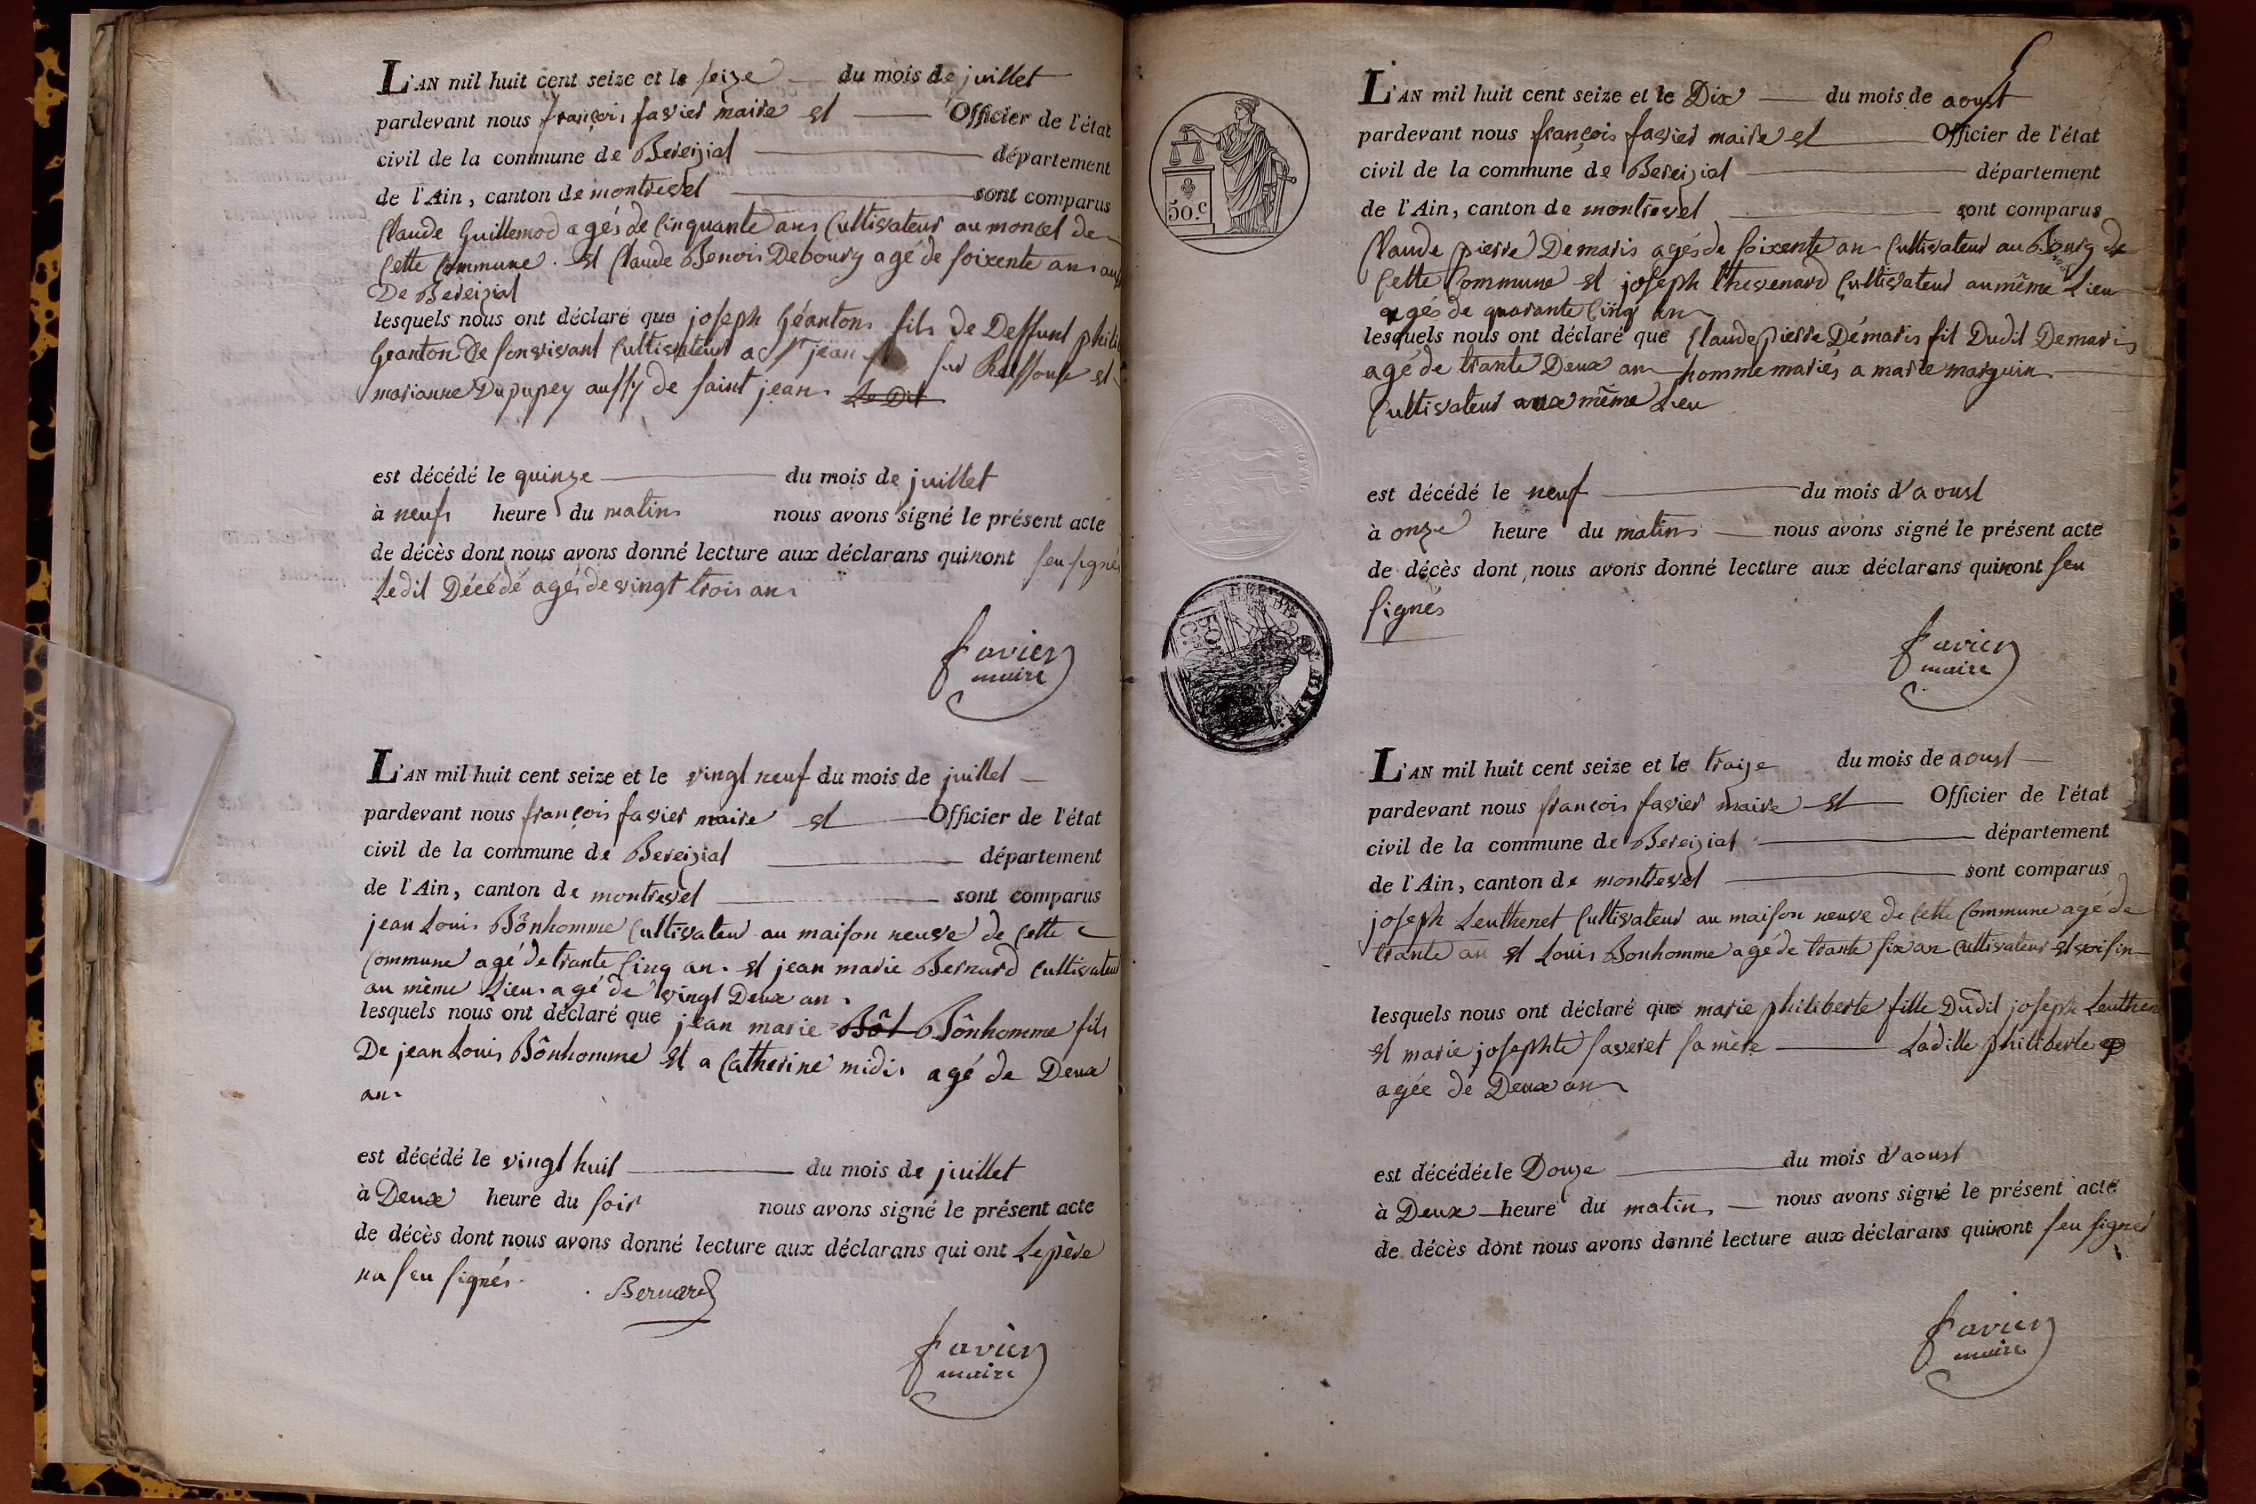 L'AN mil huit cent seize et le seize du mois de juillet
pardevant nous françois favier maire et Officier de l'état
civil de la commune de Bereiziat département
de l'Ain, canton de montrevel sont comparus
Claude Guillemod agés de Cinquante ans Cultivateur au moncel de
Cette Commune. et Claude Benois Debourg agé de soixente ans
De Bereiziat
lesquels nous ont déclaré que joseph Géanton fils de Deffunt
Geanton De son vivant Cultivateur a St jean sur Reÿssouse et
marianne Dupupey aussy de saint jean. Le Dit
est décédé le quinze du mois de juillet
à neufs heure du matins nous avons signé le présent acte
de décès dont nous avons donné lecture aux déclarans qui nont seu signés
Ledit Décédé agés de vingt trois ans
favier
maire
L'AN mil huit cent seize et le vingt neuf du mois de juillet
pardevant nous françois favier maire et Officier de l'état
civil de la commune de Bereiziat département
de l'Ain, canton de montrevel sont comparus
jean Louis Bônhomme Cultivateur au maison neuve de Cette
Commune agé de trante Cinq an. et jean marie Bernard Cultivateur
au même Lieu. agé de vingt Deux an.
lesquels nous ont déclaré que jean marie Bôt Bônhomme fils
De jean Louis Bônhomme et a Catherine midis agé de Deux
an.
est décédé le vingt huit du mois de juillet
à Deux heure du soir nous avons signé le présent acte
de décès dont nous avons donné lecture aux déclarans qui ont Le père
na seu signés.
Bernard
favier
maire
50.c
L'AN mil huit cent seize et le Dix du mois de aoust
pardevant nous françois favier maire et Officier de l'état
civil de la commune de Bereiziat département
de l'Ain, canton de montrevel sont comparus
Claude pierre Demaris agés de soixente an Cultivateur au Bourg de
Cette Commune et joseph thevenard Cultivateur au même Lieu
agés de quarante Cinq an
lesquels nous ont déclaré que Claude pierre Démaris fil Dudit Demaris
agé de trante Deux an homme mariés a marie marguin
Cultivateur aux même Lieu
est décédé le neuf du mois d'aoust
à onze heure du matins nous avons signé le présent acte
de décès dont nous avons donné lecture aux déclarans qui nont seu
signés
favier
maire
L'AN mil huit cent seize et le traize du mois de aoust
pardevant nous françois favier maire et Officier de l'état
civil de la commune de Bereiziat département
de l'Ain, canton de montrevel sont comparus
joseph Leuthenet Cultivateur au maison neuve de Cette Commune agé de
trante an et Louis Bonhomme agé de trante six an Cultivateur et voisin
lesquels nous ont déclaré que marie philiberte fille Dudit joseph Leuthen
et marie josephte faveret sa mère Ladille philiberte
agée de Deux an
est décédée le Douze du mois d'aoust
à Deux heure du matin nous avons signé le présent acte
de décès dont nous avons donné lecture aux déclarans qui nont seu signer
favier
maire